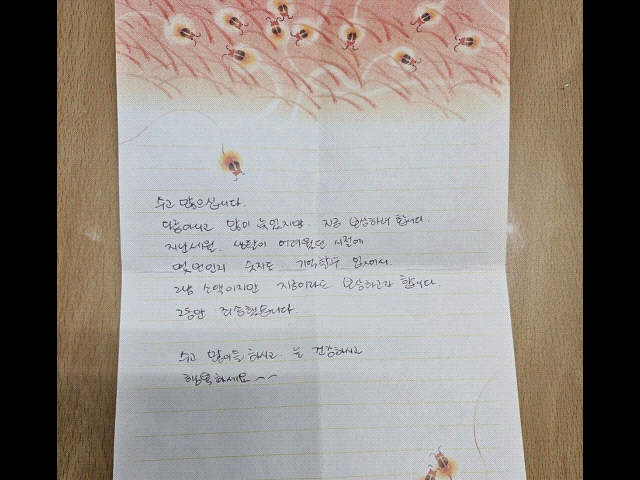 수고 많으십니다.
다름아니고 많이 늦었지만. 지금 보상하려 합니다.
지난세월. 생활이 어려웠던 시절에
몇번인지 숫자도. 기억할수 없어서.
그냥 소액이지만 지금이라도 보상하고자 합니다.
그동안 죄송했습니다.
수고 많이들 하시고 늘 건강하시고
행복하세요~~